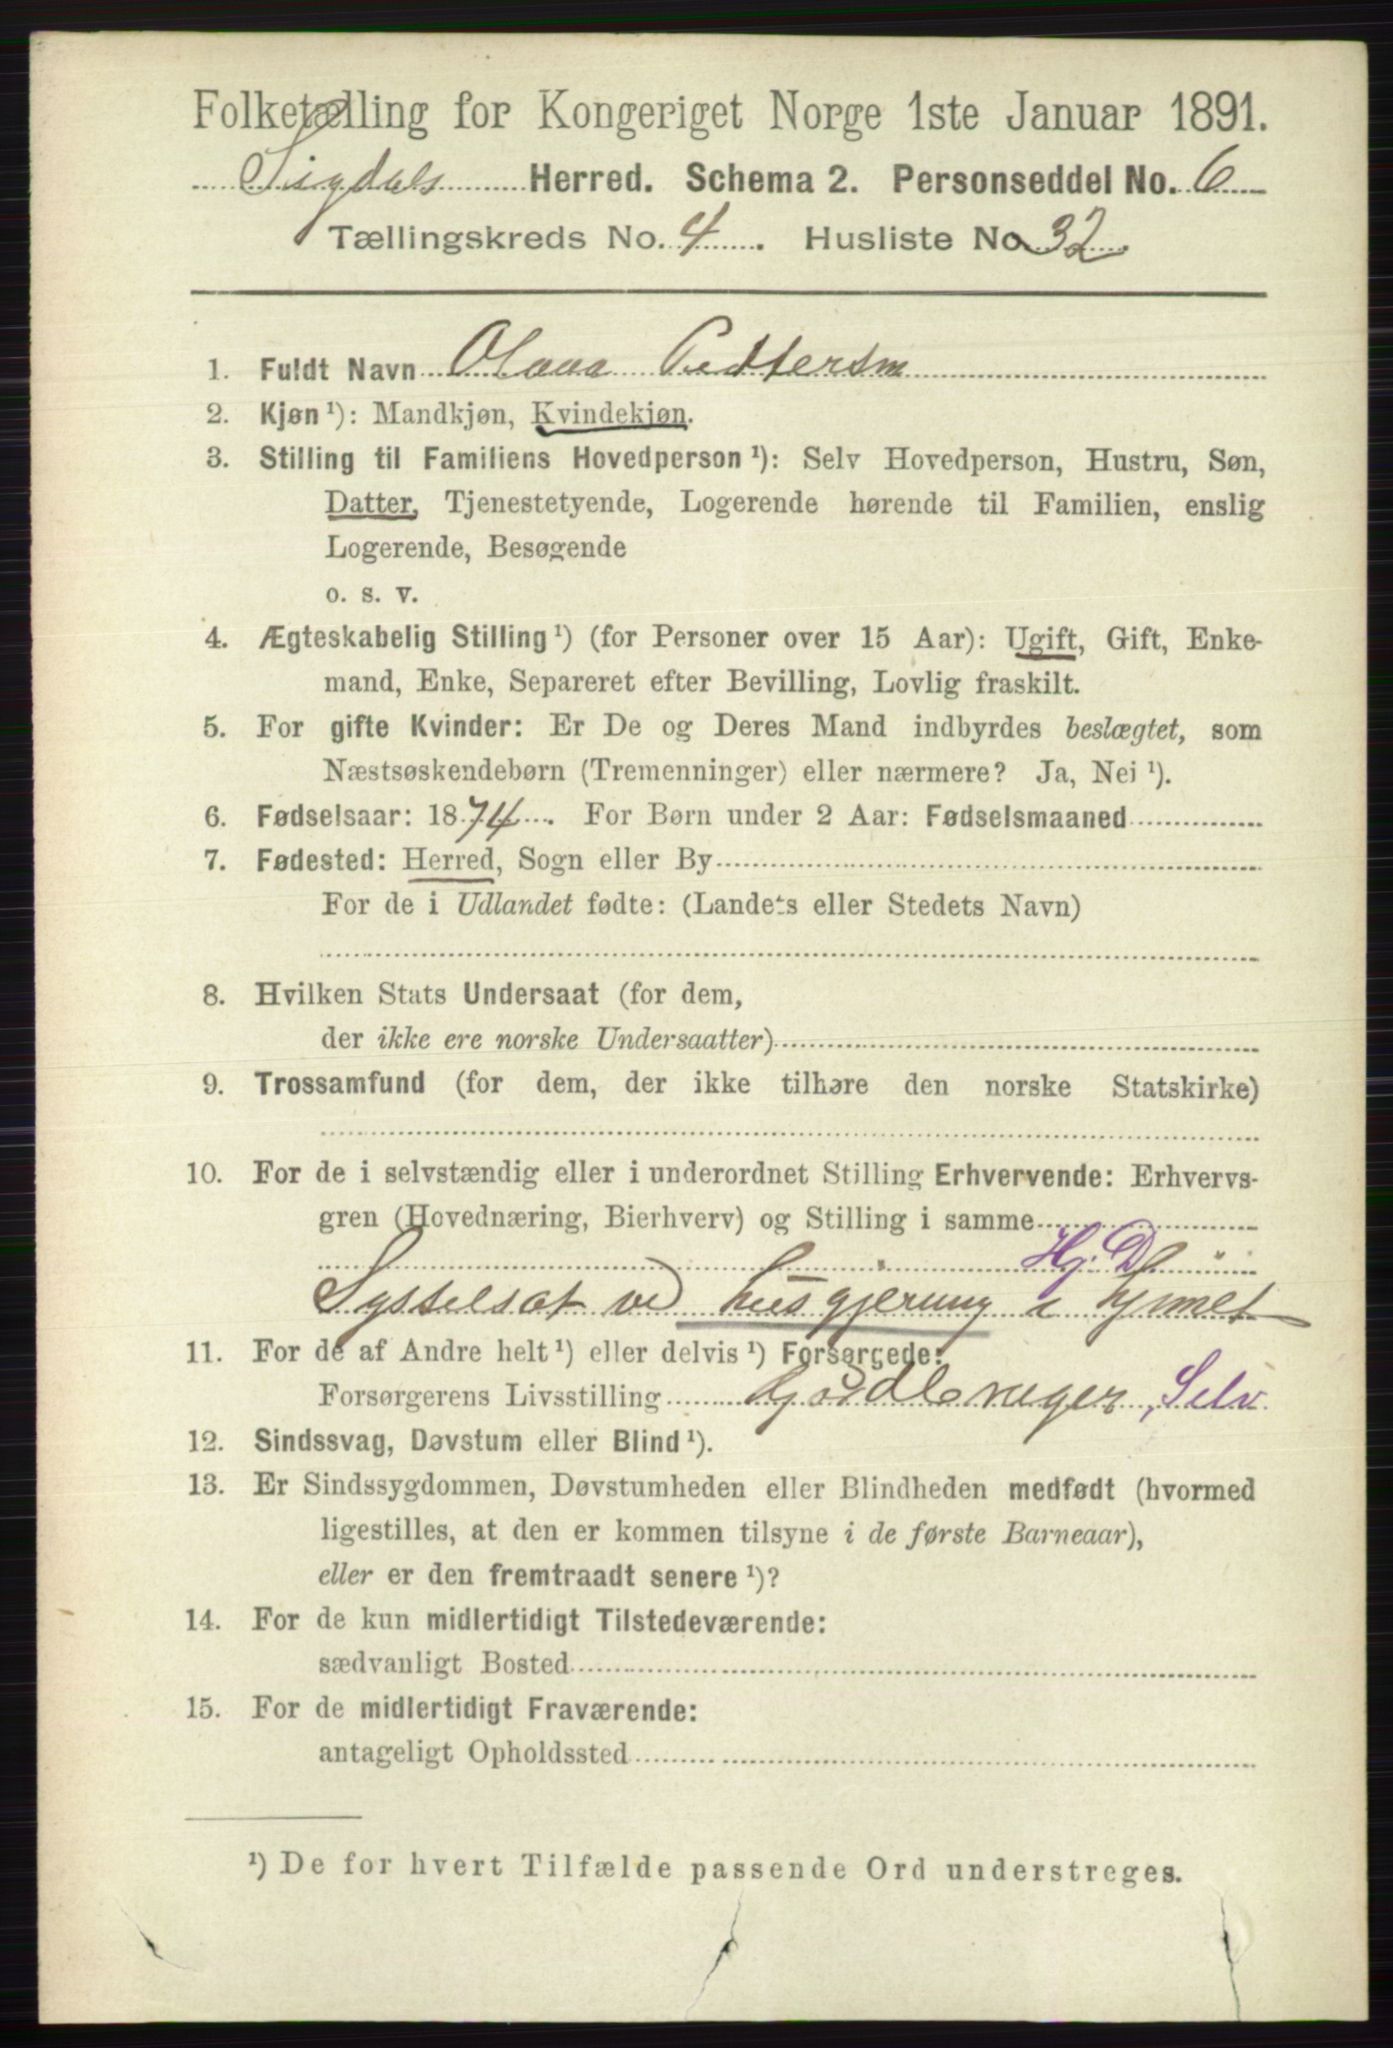 Folketælling for Kongeriget Norge 1ste Januar 1891.
Sigdals Herred. Schema 2. Personseddel No. 6
Tællingskreds No. 4. Husliste No 32.
1. Fuldt Navn Olava Pedtersen
2. Kjøn ¹): Mandkjøn, Kvindekjøn.
3. Stilling til Familiens Hovedperson ¹): Selv Hovedperson, Hustru, Søn,
Datter, Tjenestetyende, Logerende hørende til Familien, enslig
Logerende, Besøgende
o. s. v.
4. Ægteskabelig Stilling ¹) (for Personer over 15 Aar): Ugift, Gift, Enke-
mand, Enke, Separeret efter Bevilling, Lovlig fraskilt.
5. For gifte Kvinder: Er De og Deres Mand indbyrdes beslægtet, som
Næstsøskendebørn (Tremenninger) eller nærmere? Ja, Nei ¹).
6. Fødselsaar: 1874. For Børn under 2 Aar: Fødselsmaaned
7. Fødested: Herred, Sogn eller By
For de i Udlandet fødte: (Landets eller Stedets Navn)
8. Hvilken Stats Undersaat (for dem,
der ikke ere norske Undersaatter)
9. Trossamfund (for dem, der ikke tilhøre den norske Statskirke)
10. For de i selvstændig eller i underordnet Stilling Erhvervende: Erhvervs-
gren (Hovednæring, Bierhverv) og Stilling i samme
Hj. D
Sysselsat ve husgjerung i hjmet
11. For de af Andre helt ¹) eller delvis ¹) Forsørgede:
Forsørgerens Livsstilling, Selv.
12. Sindssvag, Døvstum eller Blind ¹).
13. Er Sindssygdommen, Døvstumheden eller Blindheden medfødt (hvormed
ligestilles, at den er kommen tilsyne i de første Barneaar),
eller er den fremtraadt senere ¹)?
14. For de kun midlertidigt Tilstedeværende:
sædvanligt Bosted
15. For de midlertidigt Fraværende:
antageligt Opholdssted
¹) De for hvert Tilfælde passende Ord understreges.